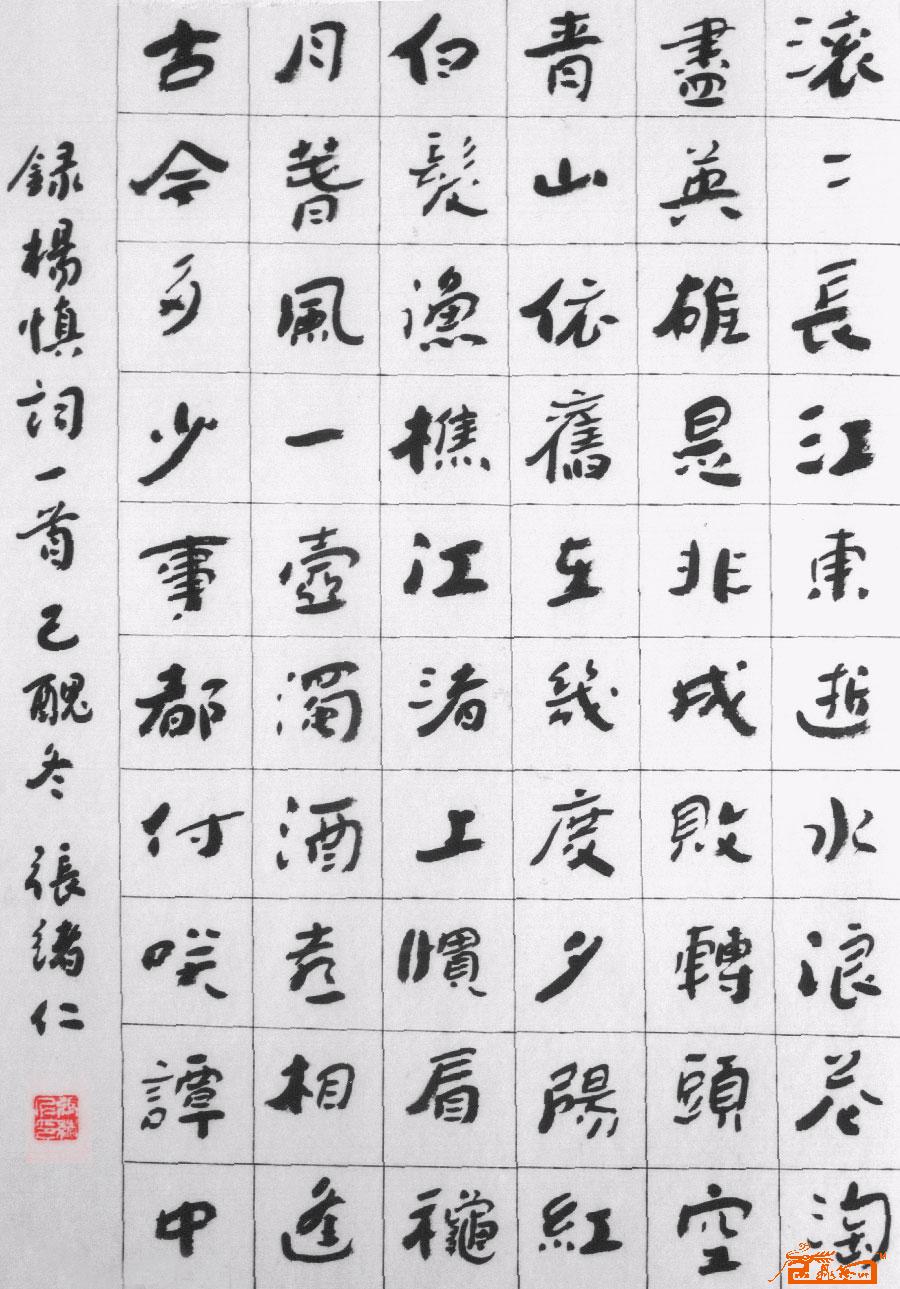 滚〻長江東逝水浪花淘
盡英雄是非成敗轉頭空
青山依舊在幾度夕陽紅
白髮漁樵江渚上慣看龝
月萅風一壺濁酒喜相逢
古今多少事都付咲譚中
録楊慎詞一首己醜冬 張緒仁
張緒仁印